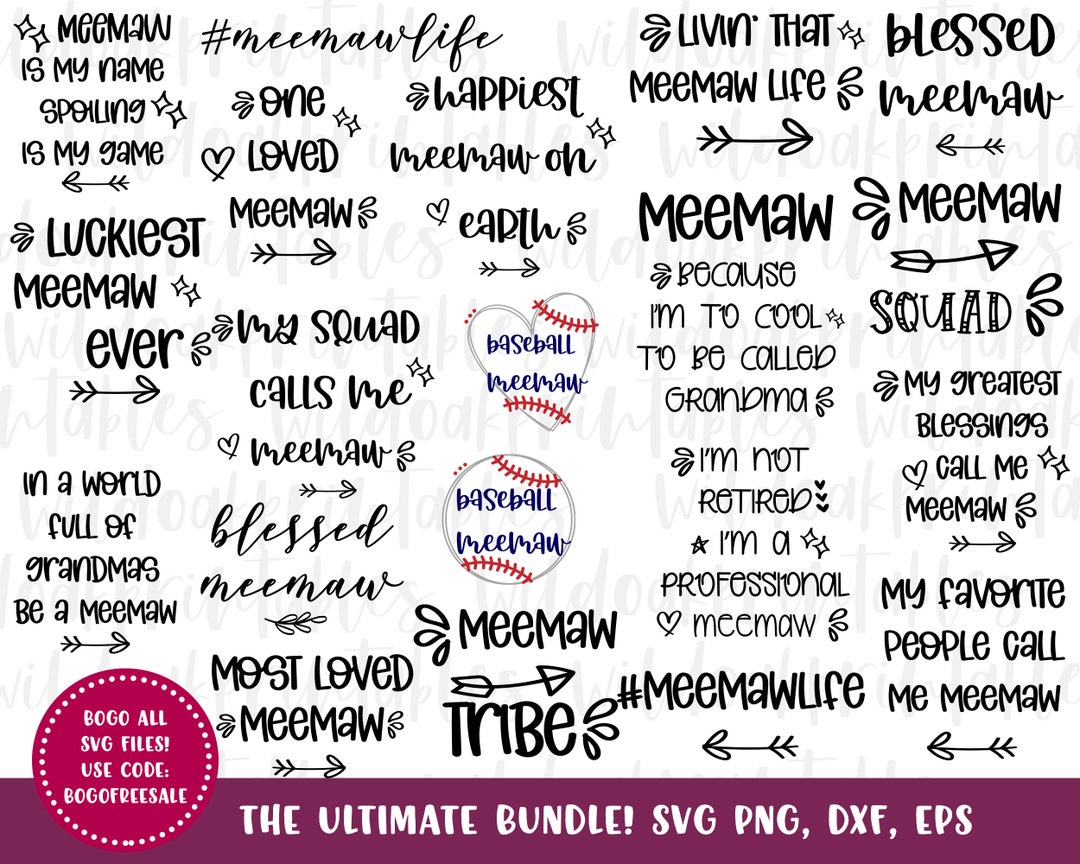 MEEMAW
IS MY NAME
SPOILING
IS MY GAME
#meemawlife
ONE
LOVED
MEEMAW
HAPPIEST
meemaw on
EARTH
LIVIN' THAT
MEEMAW LIFE
BLESSED
meemaw
LUCKIEST
MEEMAW
EVER
MY SQUAD
CALLS ME
meemaw
baseball
meemaw
MEEMAW
BECAUSE
I'M TO COOL
TO BE CALLED
GRANDMA
MEEMAW
SQUAD
MY GREATEST
BLESSINGS
CALL ME
MEEMAW
IN A WORLD
FULL OF
GRANDMAS
BE A MEEMAW
blessed
meemaw
baseball
meemaw
I'M NOT
RETIRED
I'M A
PROFESSIONAL
meemaw
MY FAVORITE
PEOPLE CALL
ME MEEMAW
MOST LOVED
MEEMAW
MEEMAW
TRIBE
#MEEMAWLIFE
BOGO ALL
SVG FILES!
USE CODE:
BOGOFREESALE
THE ULTIMATE BUNDLE! SVG PNG, DXF, EPS
wildoakprintables